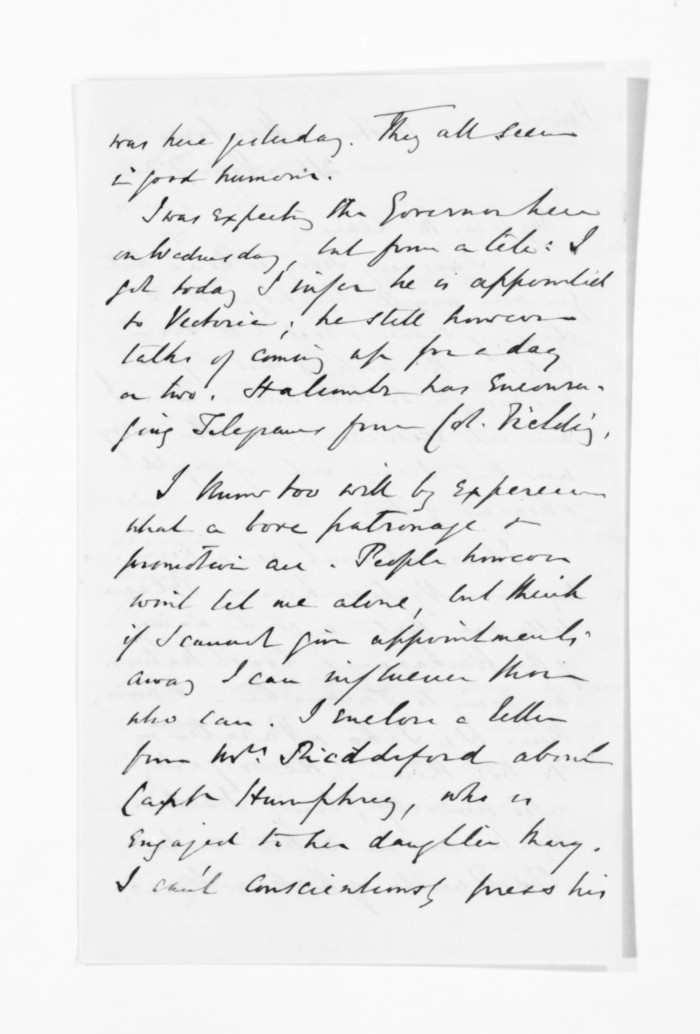 was here yesterday. They all seem
in good humour.
I was expecting the Governor here
on Wednesday, but from a tele: I
got today I infer he is appointed
to Victoria; he still however
talks of coming up for a day
or two. Halcombe has encoura-
ging Telegrams from Col. Fielding.
I know too well by experience
what a bore patronage &
promotion are. People however
won't let me alone, but think
if I cannot give appointments
away I can influence those
who can. I enclose a letter
from Mrs. Riddiford about
Captn Humphrey, who is
engaged to her daughter Mary.
I can't conscientiously press his